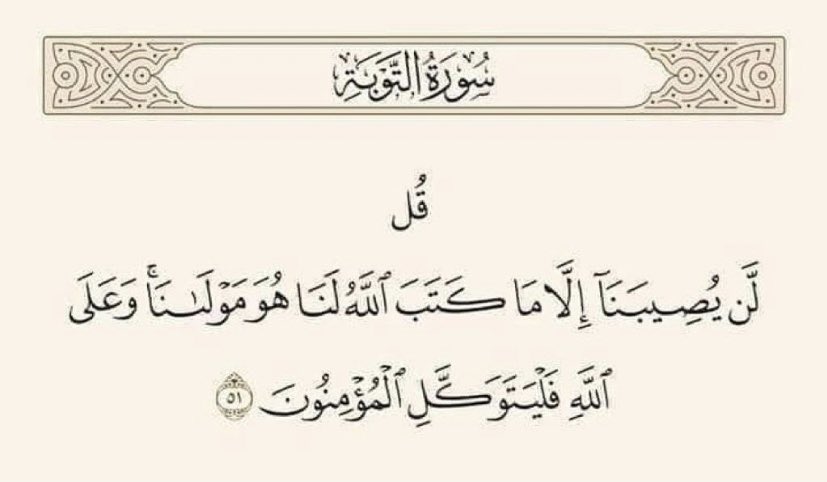 سُورَةُ التَّوْبَةِ
قُل
لَّن يُصِيبَنَآ إِلَّا مَا كَتَبَ ٱللَّهُ لَنَا هُوَ مَوْلَىٰنَاۚ وَعَلَى
ٱللَّهِ فَلْيَتَوَكَّلِ ٱلْمُؤْمِنُونَ ٥١